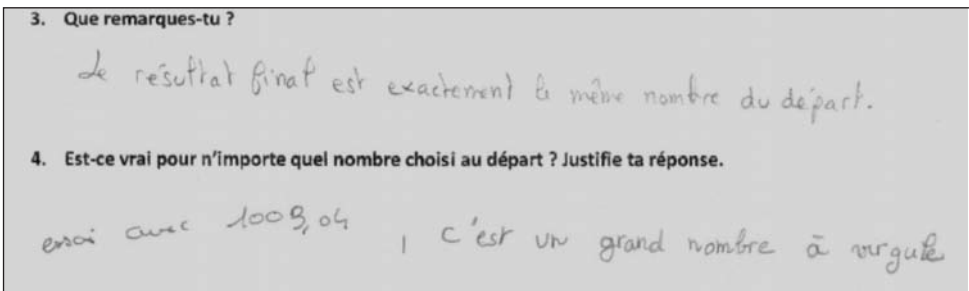 3. Que remarques-tu ?
Le résultat final est exactement le même nombre du départ.
4. Est-ce vrai pour n'importe quel nombre choisi au départ ? Justifie ta réponse.
essai avec 1009,04 , c'est un grand nombre à virgule